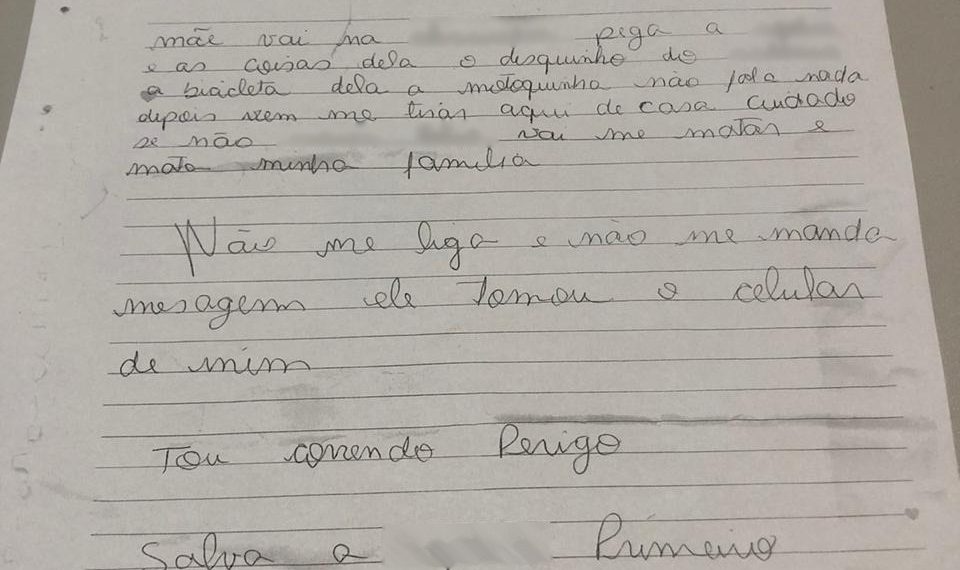 mãe vai na pega a
e as coisas dela o disquinho do
a bicicleta dela a motoquinha não fala nada
depois vem me tirar aqui de casa cuidado
se não vai me matar e
mata minha família
Não me liga e não me manda
mesagem ele tomou o celular
de mim
Tou correndo Perigo
Salva a Primeiro